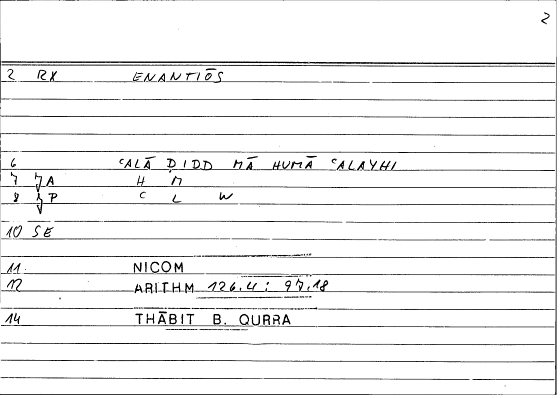 2
2 RX ENANTIŌS
6 ʿALĀ ḌIDD MĀ HUMĀ ʿALAYHI
7 A H M
8 P C L W
10 SE
11 NICOM
12 ARITHM 126.4 : 97.18
14 THĀBIT B. QURRA